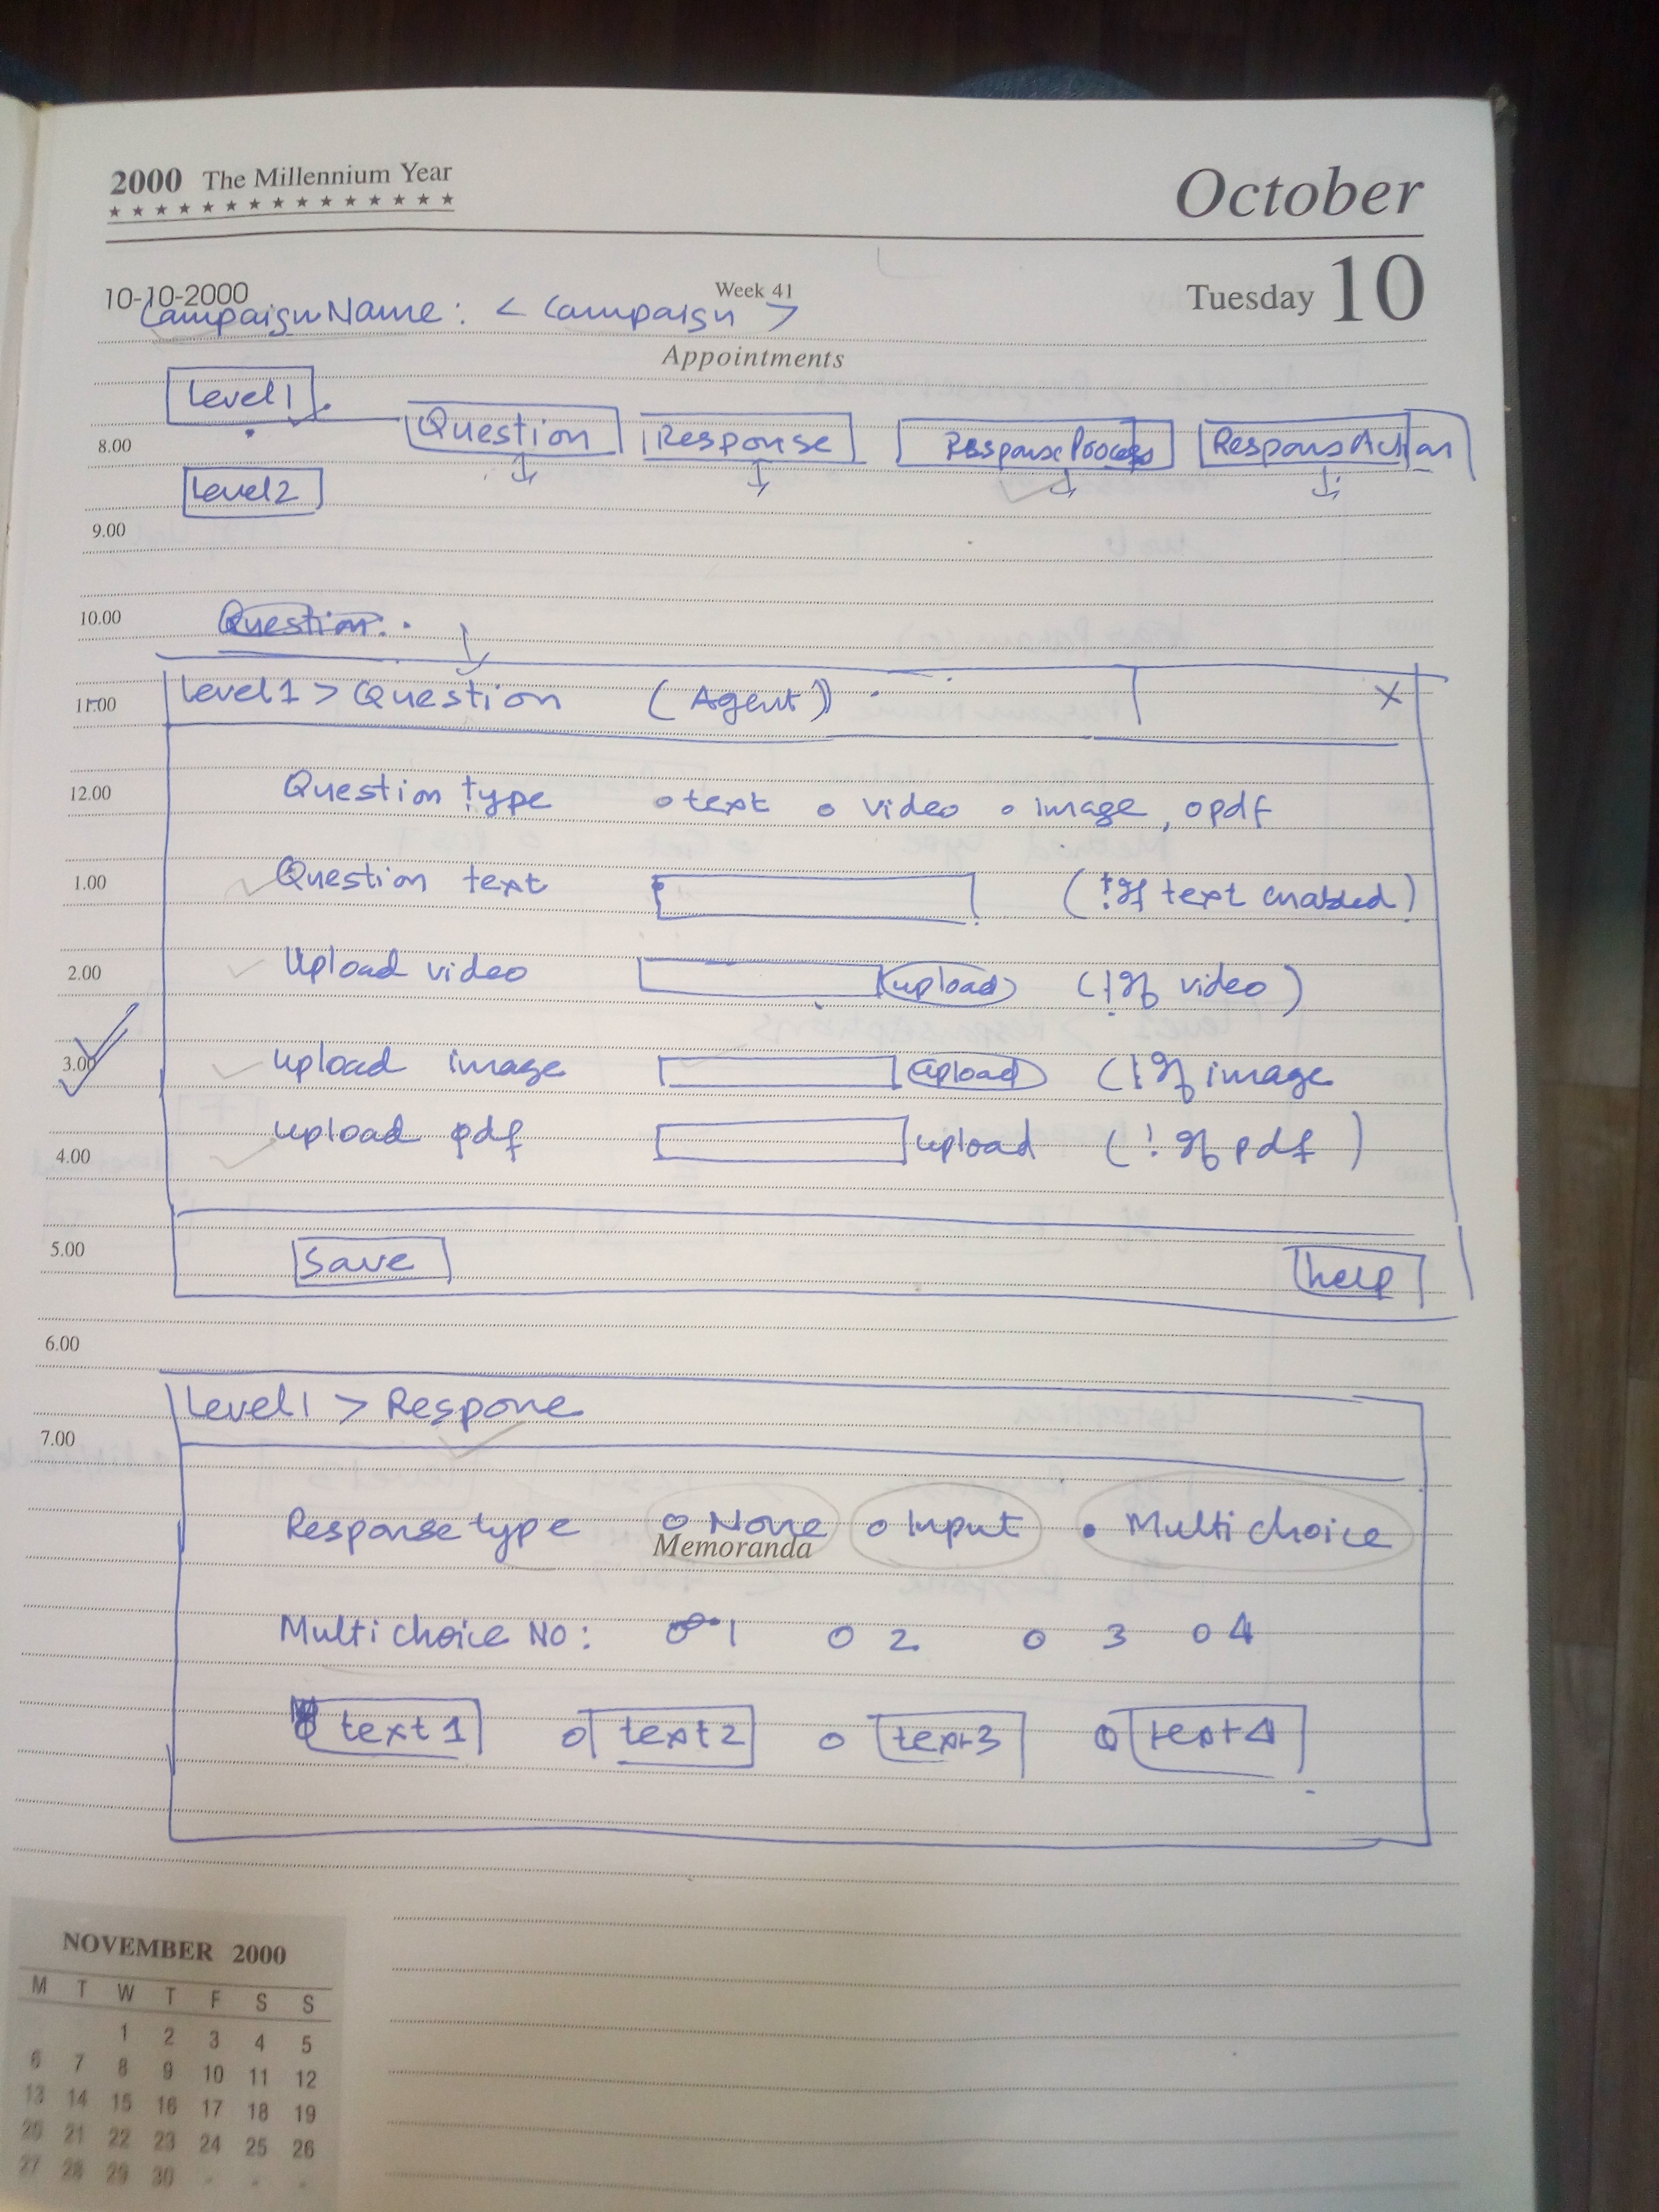 2000 The Millennium Year
October
10-10-2000
Week 41
Tuesday 10
Campaign Name: < Campaign >
Appointments
Level1
8.00 Question Response Response Process Respons Action
Level2
9.00
10.00 Question:
11.00 Level1 > Question (Agent) X
12.00 Question type o text o video o image, o pdf
1.00 Question text (!If text enabled)
2.00 Upload video upload (!If video)
3.00 upload image upload (!If image
4.00 upload pdf upload (!If pdf)
5.00 Save help
6.00
Level1 > Respone
7.00
Response type o None o Input • Multi choice
Memoranda
Multi choice NO: o 1 o 2 o 3 o 4
text1 o text2 o text3 o text4
NOVEMBER 2000
M T W T F S S
1 2 3 4 5
6 7 8 9 10 11 12
13 14 15 16 17 18 19
20 21 22 23 24 25 26
27 28 29 30